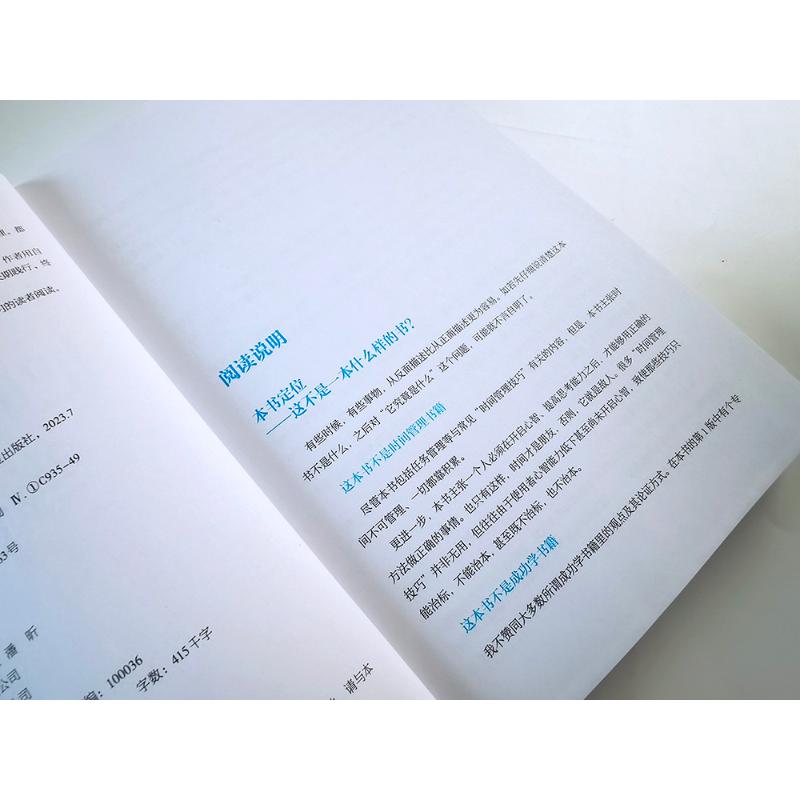 理，都
作者用自
长期践行，终
习的读者阅读。
业出版社，2023.7
Ⅳ.①C935-49
63号
潘 昕
公司
公司
编：100036
字数：415千字
请与本
阅读说明
本书定位
——这不是一本什么样的书？
有些时候，有些事物，从反面描述比从正面描述更为容易。如若先仔细说清楚这本
书不是什么，之后对“它究竟是什么”这个问题，可能就不言自明了。
这本书不是时间管理书籍
尽管本书包括任务管理等与常见“时间管理技巧”有交的内容，但是，本书主张时
间不可管理，一切都靠积累。
更进一步，本书主张一个人必须在开启心智、提高思考能力之后，才能够用正确的
方法做正确的事情。也只有这样，时间才是朋友，否则，它就是敌人。很多“时间管理
技巧”并非无用，但往往由于使用者心智能力低下甚至尚未开启心智，致使那些技巧只
能治标，不能治本，甚至既不治标，也不治本。
这本书不是成功学书籍
我不赞同大多数所谓成功学书籍里的观点及其论证方式。在本书的第1版中有个专